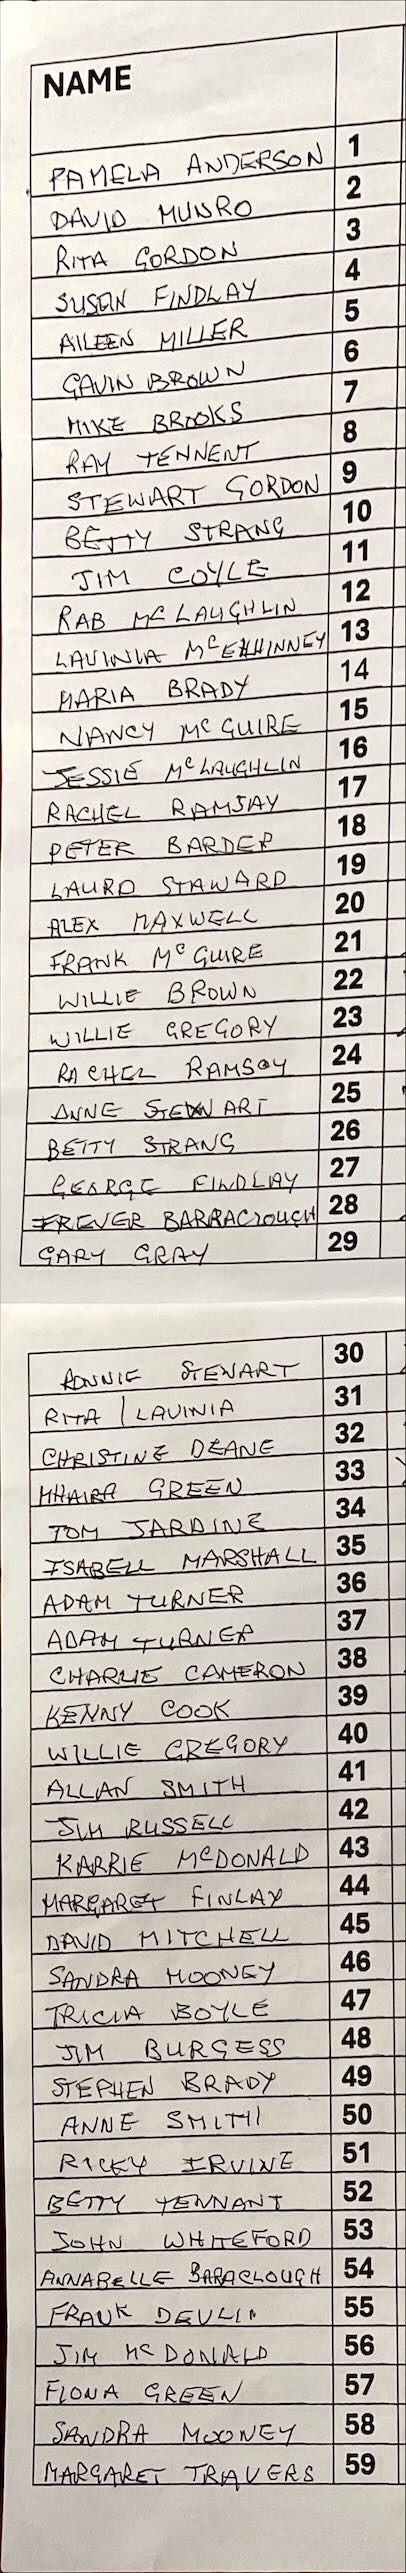 NAME
PAMELA ANDERSON 1
DAVID MUNRO 2
RITA GORDON 3
SUSAN FINDLAY 4
AILEEN MILLER 5
GAVIN BROWN 6
MIKE BROOKS 7
RAY TENNENT 8
STEWART GORDON 9
BETTY STRANG 10
JIM COYLE 11
RAB McLAUGHLIN 12
LAVINIA McELHINNEY 13
MARIA BRADY 14
NANCY McGUIRE 15
JESSIE McLAUGHLIN 16
RACHEL RAMSAY 17
PETER BARDER 18
LAURD STAWARD 19
ALEX MAXWELL 20
FRANK McGUIRE 21
WILLIE BROWN 22
WILLIE GREGORY 23
RACHEL RAMSAY 24
ANNE STEWART 25
BETTY STRANG 26
GEORGE FINDLAY 27
BARRACLOUGH 28
GARY GRAY 29
RONNIE STEWART 30
RITA | LAVINIA 31
CHRISTINE DEANE 32
MHAIRA GREEN 33
TOM JARDINE 34
ISABELL MARSHALL 35
ADAM TURNER 36
ADAM TURNER 37
CHARLIE CAMERON 38
KENNY COOK 39
WILLIE GREGORY 40
ALLAN SMITH 41
JIM RUSSELL 42
KARRIE McDONALD 43
MARGARET FINLAY 44
DAVID MITCHELL 45
SANDRA MOONEY 46
TRICIA BOYLE 47
JIM BURGESS 48
STEPHEN BRADY 49
ANNE SMITH 50
RICKY IRVINE 51
BETTY TENNANT 52
JOHN WHITEFORD 53
ANNABELLE BARACLOUGH 54
FRANK DEVLIN 55
JIM McDONALD 56
FIONA GREEN 57
SANDRA MOONEY 58
MARGARET TRAVERS 59